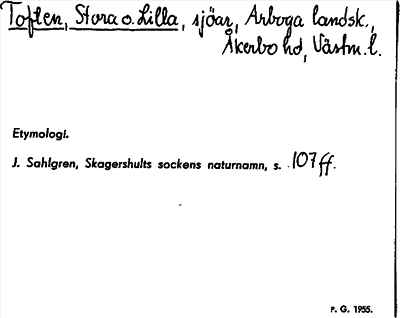 Toften, Stora o. Lilla, sjöar, Arboga landsk.,
Åkerbo hd, Västm. l.
Etymologi.
J. Sahlgren, Skagershults sockens naturnamn, s. 107 ff.
P. G. 1955.